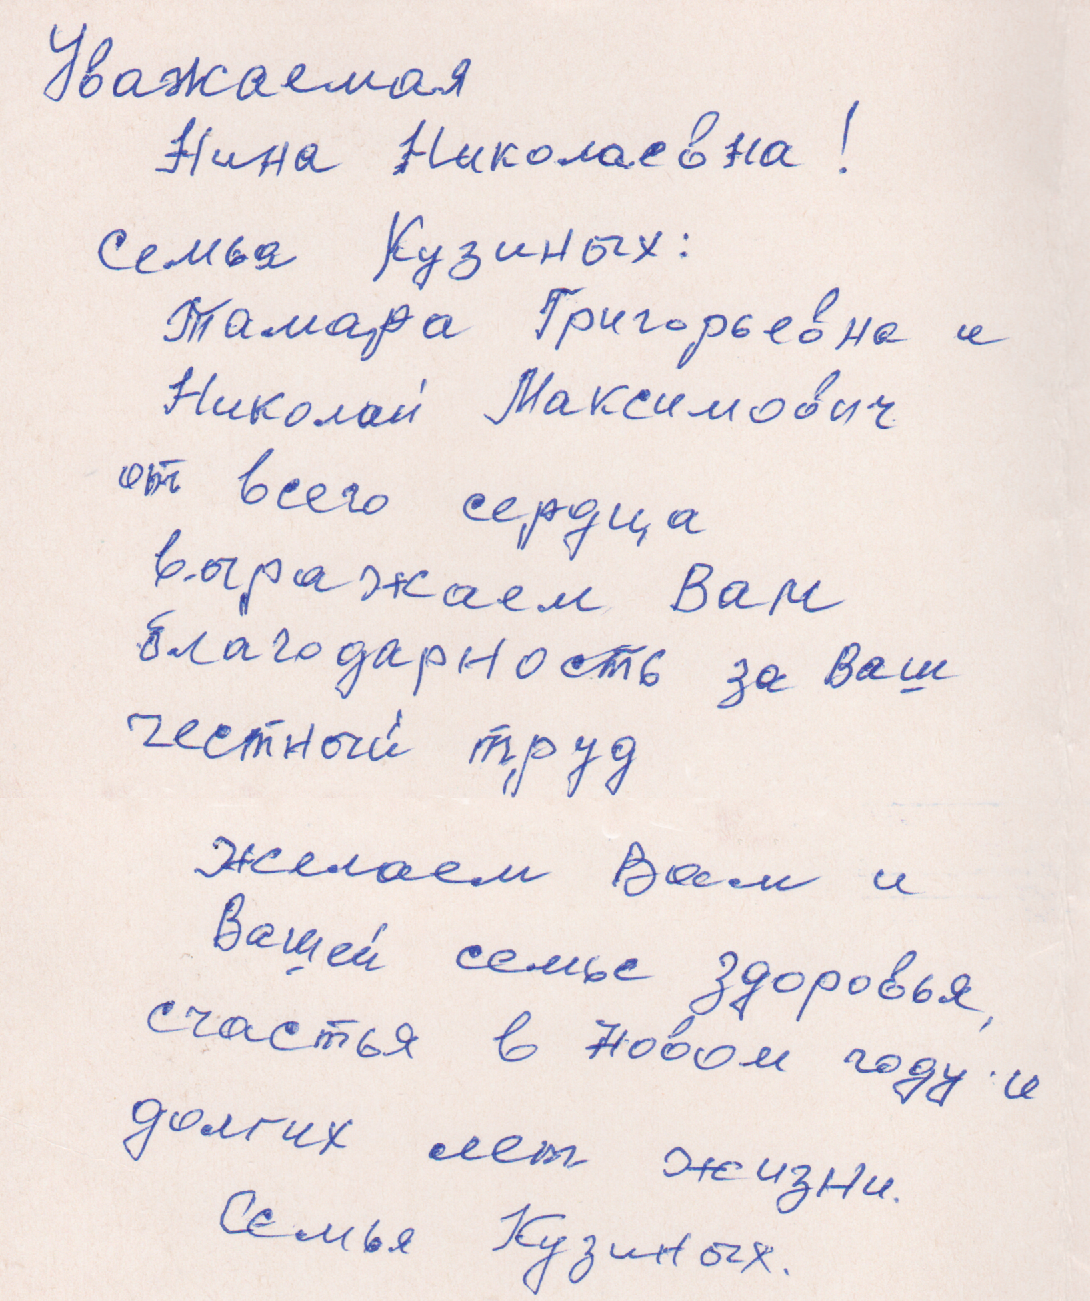 Уважаемая
Нина Николаевна!
Семья Кузиных:
Тамара Григорьевна и
Николай Максимович
от всего сердца
выражаем Вам
благодарность за Ваш
честный труд
Желаем Вам и
Вашей семье здоровья,
счастья в Новом году и
долгих лет жизни.
Семья Кузиных.